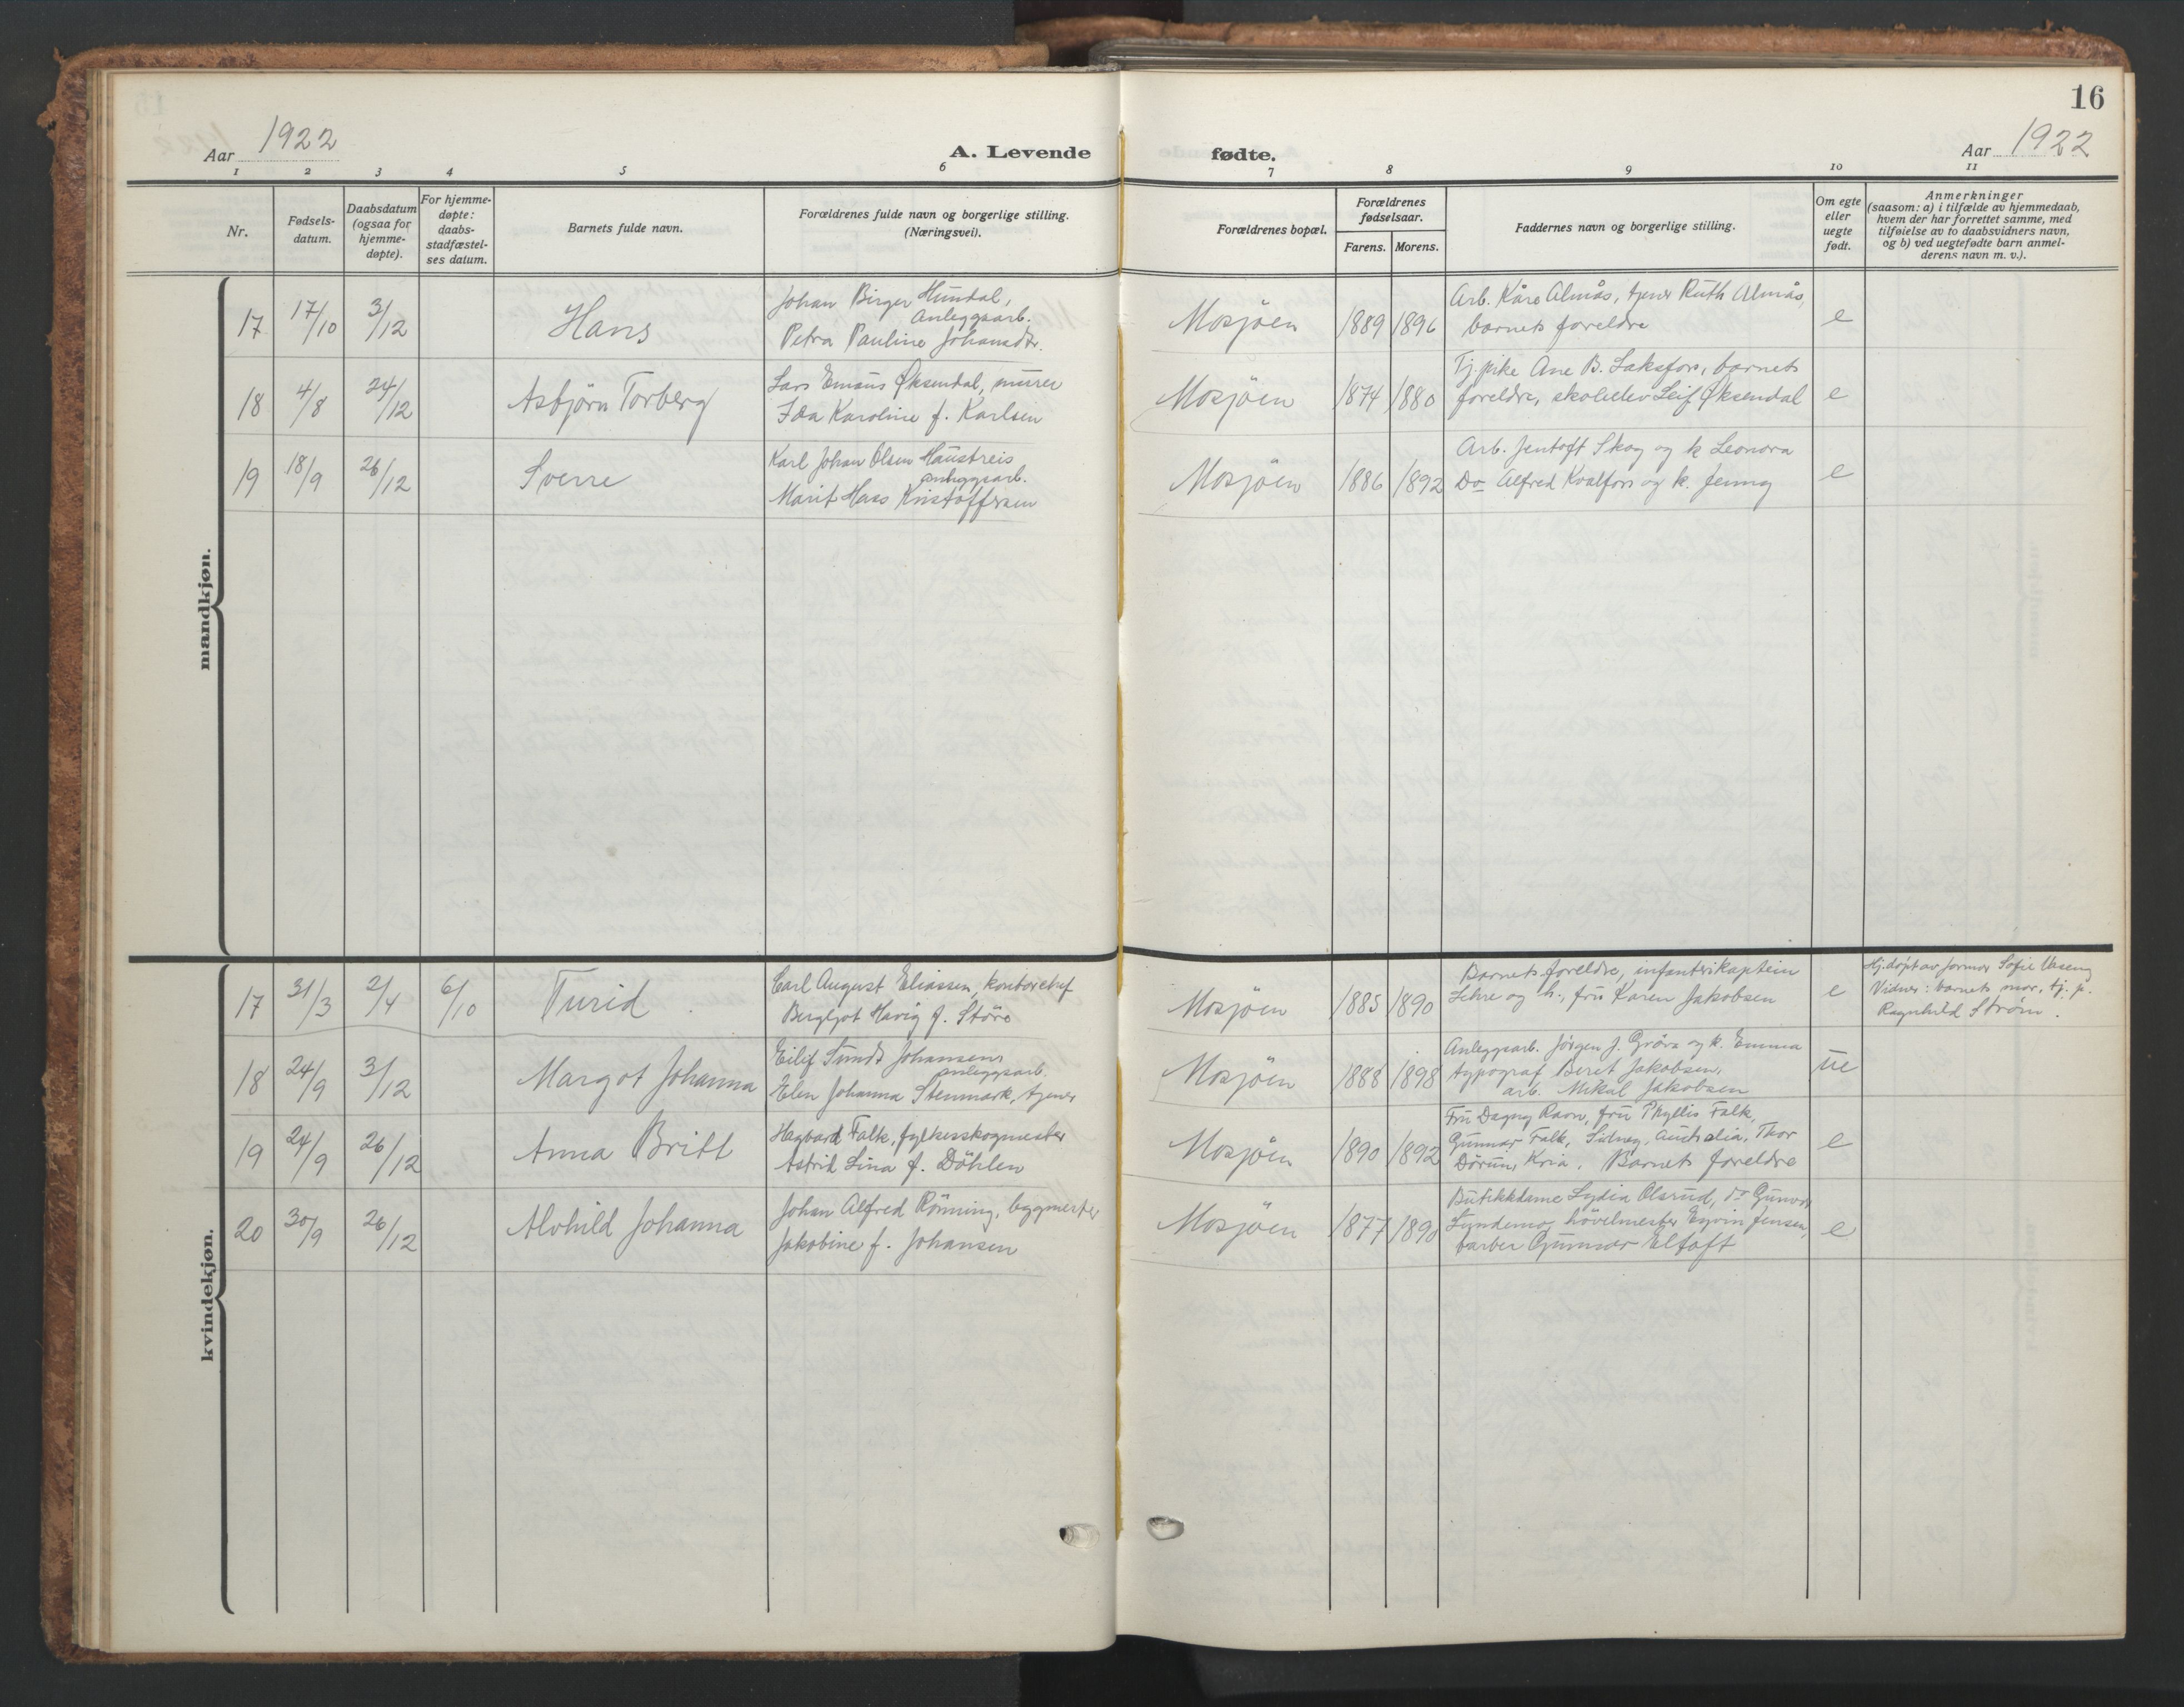 16
Aar 1922
A. Levende fødte.
Aar 1922
1 2 3 4 5 6 7 8 9 10 11
Nr.
Fødsels-
datum.
Daabsdatum
(ogsaa for
hjemme-
døpte).
For hjemme-
døpte:
daabs-
stadfæstel-
ses datum.
Barnets fulde navn.
Forældrenes fulde navn og borgerlige stilling.
(Næringsvei).
Forældrenes bopæl.
Forældrenes
fødselsaar.
Farens. Morens.
Faddernes navn og borgerlige stilling.
Om egte
eller
uegte
født.
Anmerkninger
(saasom: a) i tilfælde av hjemmedaab,
hvem der har forrettet samme, med
tilføielse av to daabsvidners navn,
og b) ved uegtefødte barn anmel-
derens navn m. v.).
mandkjøn.
17 17/10 3/12 Hans
Johan Birger Hundal,
Anleggsarb.
Petra Pauline Johansdtr.
Mosjöen 1889 1896
Arb. Kåre Almås, tjener Ruth Almås,
barnets foreldre
e
18 4/8 24/12 Asbjörn Torberg
Lars Emaus Øksendal, murer
Ida Karoline f. Karlsen
Mosjöen 1874 1880
Tj.pike Ane B. Laksfors, barnets
foreldre, skoleelev Leif Øksendal
e
19 18/9 26/12 Sverre
Karl Johan Olsen Haustreis
anleggsarb.
Marit Haas Kristoffersen
Mosjöen 1886 1892
Arb. Jentoft Skog og k Leonora
Do Alfred Kvalfors og k. Jenny
e
kvindekjøn.
17 31/3 2/4 6/10 Turid
Carl August Eliassen, kontorchef
Bergljot Havig f. Störe
Mosjöen 1885 1890
Barnets foreldre, infanterikaptein
Lehre og h., fru Karen Jakobsen
e
Hj.døpt av jormor Sofie Vaseng
Vidner: barnets mor, tj. p.
Ragnhild Strøm.
18 24/9 3/12 Margot Johanna
Eilif Sund Johansen,
anleggsarb.
Elen Johanna Stenmark, tjener
Mosjöen 1888 1898
Anleggsarb. Jörgen J. Gröra og k. Emma
typograf Beret Jakobsen,
arb. Mikal Jakobsen
ue
19 24/9 26/12 Anna Britt
Hagbard Falk, fylkesskogmester
Astrid Lina f. Döhlen
Mosjöen 1890 1892
Fru Dagny Ravn, fru Phyllis Falk,
Gunnar Falk, Sidney, Australia, Thor
Dörum, Kria. Barnets foreldre
e
20 30/9 26/12 Alvhild Johanna
Johan Alfred Rönning, byggmester
Jakobine f. Johansen
Mosjöen 1877 1890
Butikkdame Lydia Olsrud, do Gunvor
Lyndemo, hövelmester Eyvin Jensen,
barber Gunnar Eltoft
e